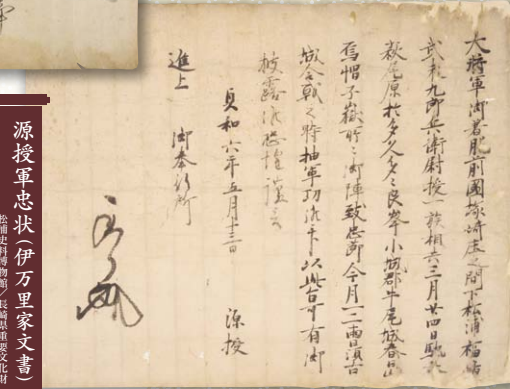 大将軍御着肥前國塚崎庄之間下松浦福嶋
九郎兵衛尉授一族相共三月廿四日馳
原於多久多々良峯小城郡牛尾城春日
烏帽子嶽所々御陣致忠節今月一二兩日濱古
城合戦之時抽軍功候畢以此旨可有御
披露候恐惶謹言
貞和六年五月十三日 源授
進上 御奉行所
源授軍忠状(伊万里家文書)
松浦史料博物館/長崎県重要文化財